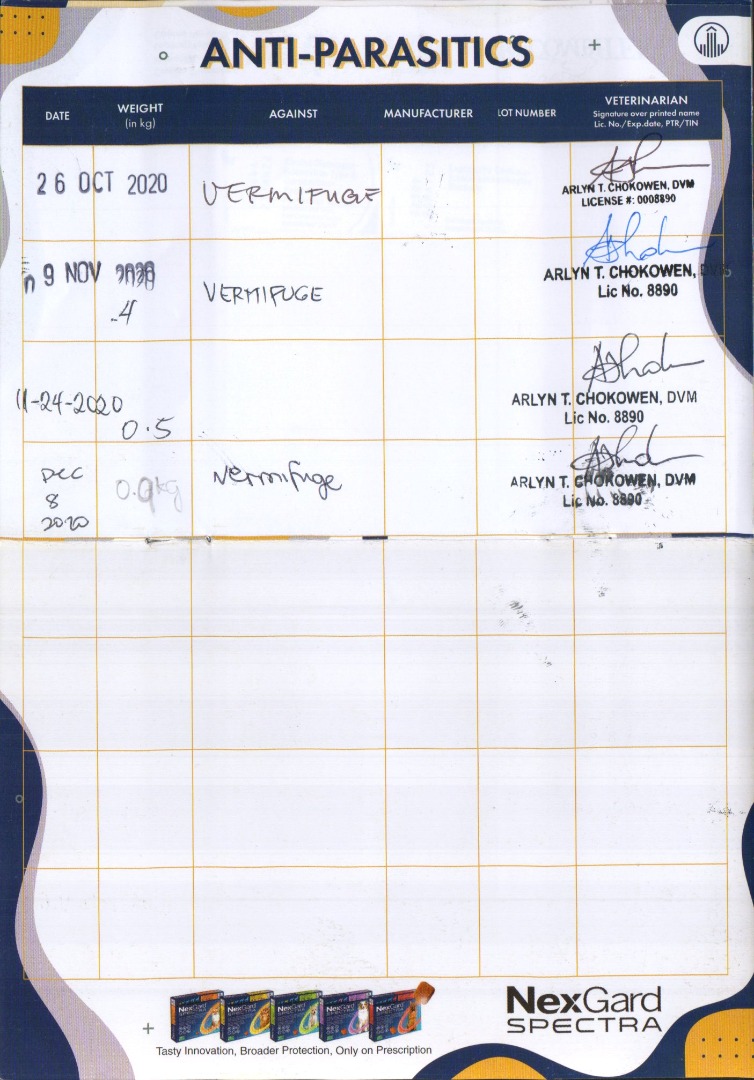 ANTI-PARASITICS
DATE
WEIGHT
(in kg)
AGAINST
MANUFACTURER
LOT NUMBER
VETERINARIAN
Signature over printed name
Lic. No./Exp.date, PTR/TIN
26 OCT 2020
VERMIFUGE
ARLYN T. CHOKOWEN, DVM
LICENSE #: 0008890
9 NOV 2020
.4
VERMIFUGE
ARLYN T. CHOKOWEN, DVM
Lic No. 8890
11-24-2020
0.5
ARLYN T. CHOKOWEN, DVM
Lic No. 8890
DEC
8
2020
0.9kg
Vermifuge
ARLYN T. CHOKOWEN, DVM
Lic No. 8890
NexGard
SPECTRA
Tasty Innovation, Broader Protection, Only on Prescription